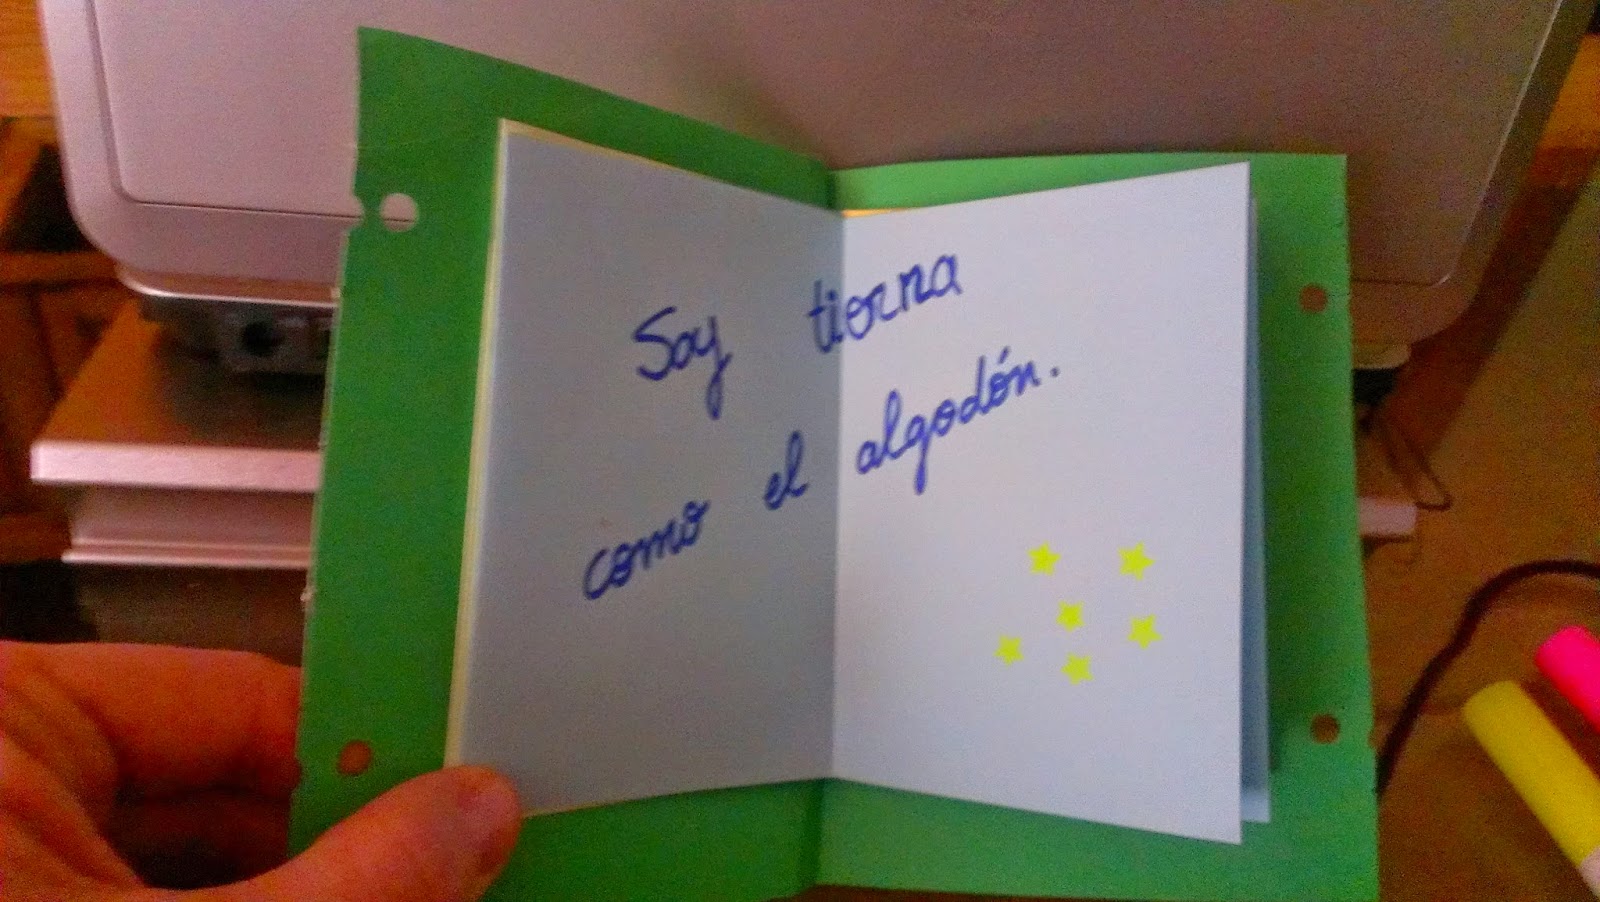 Soy tierna
como el algodón.